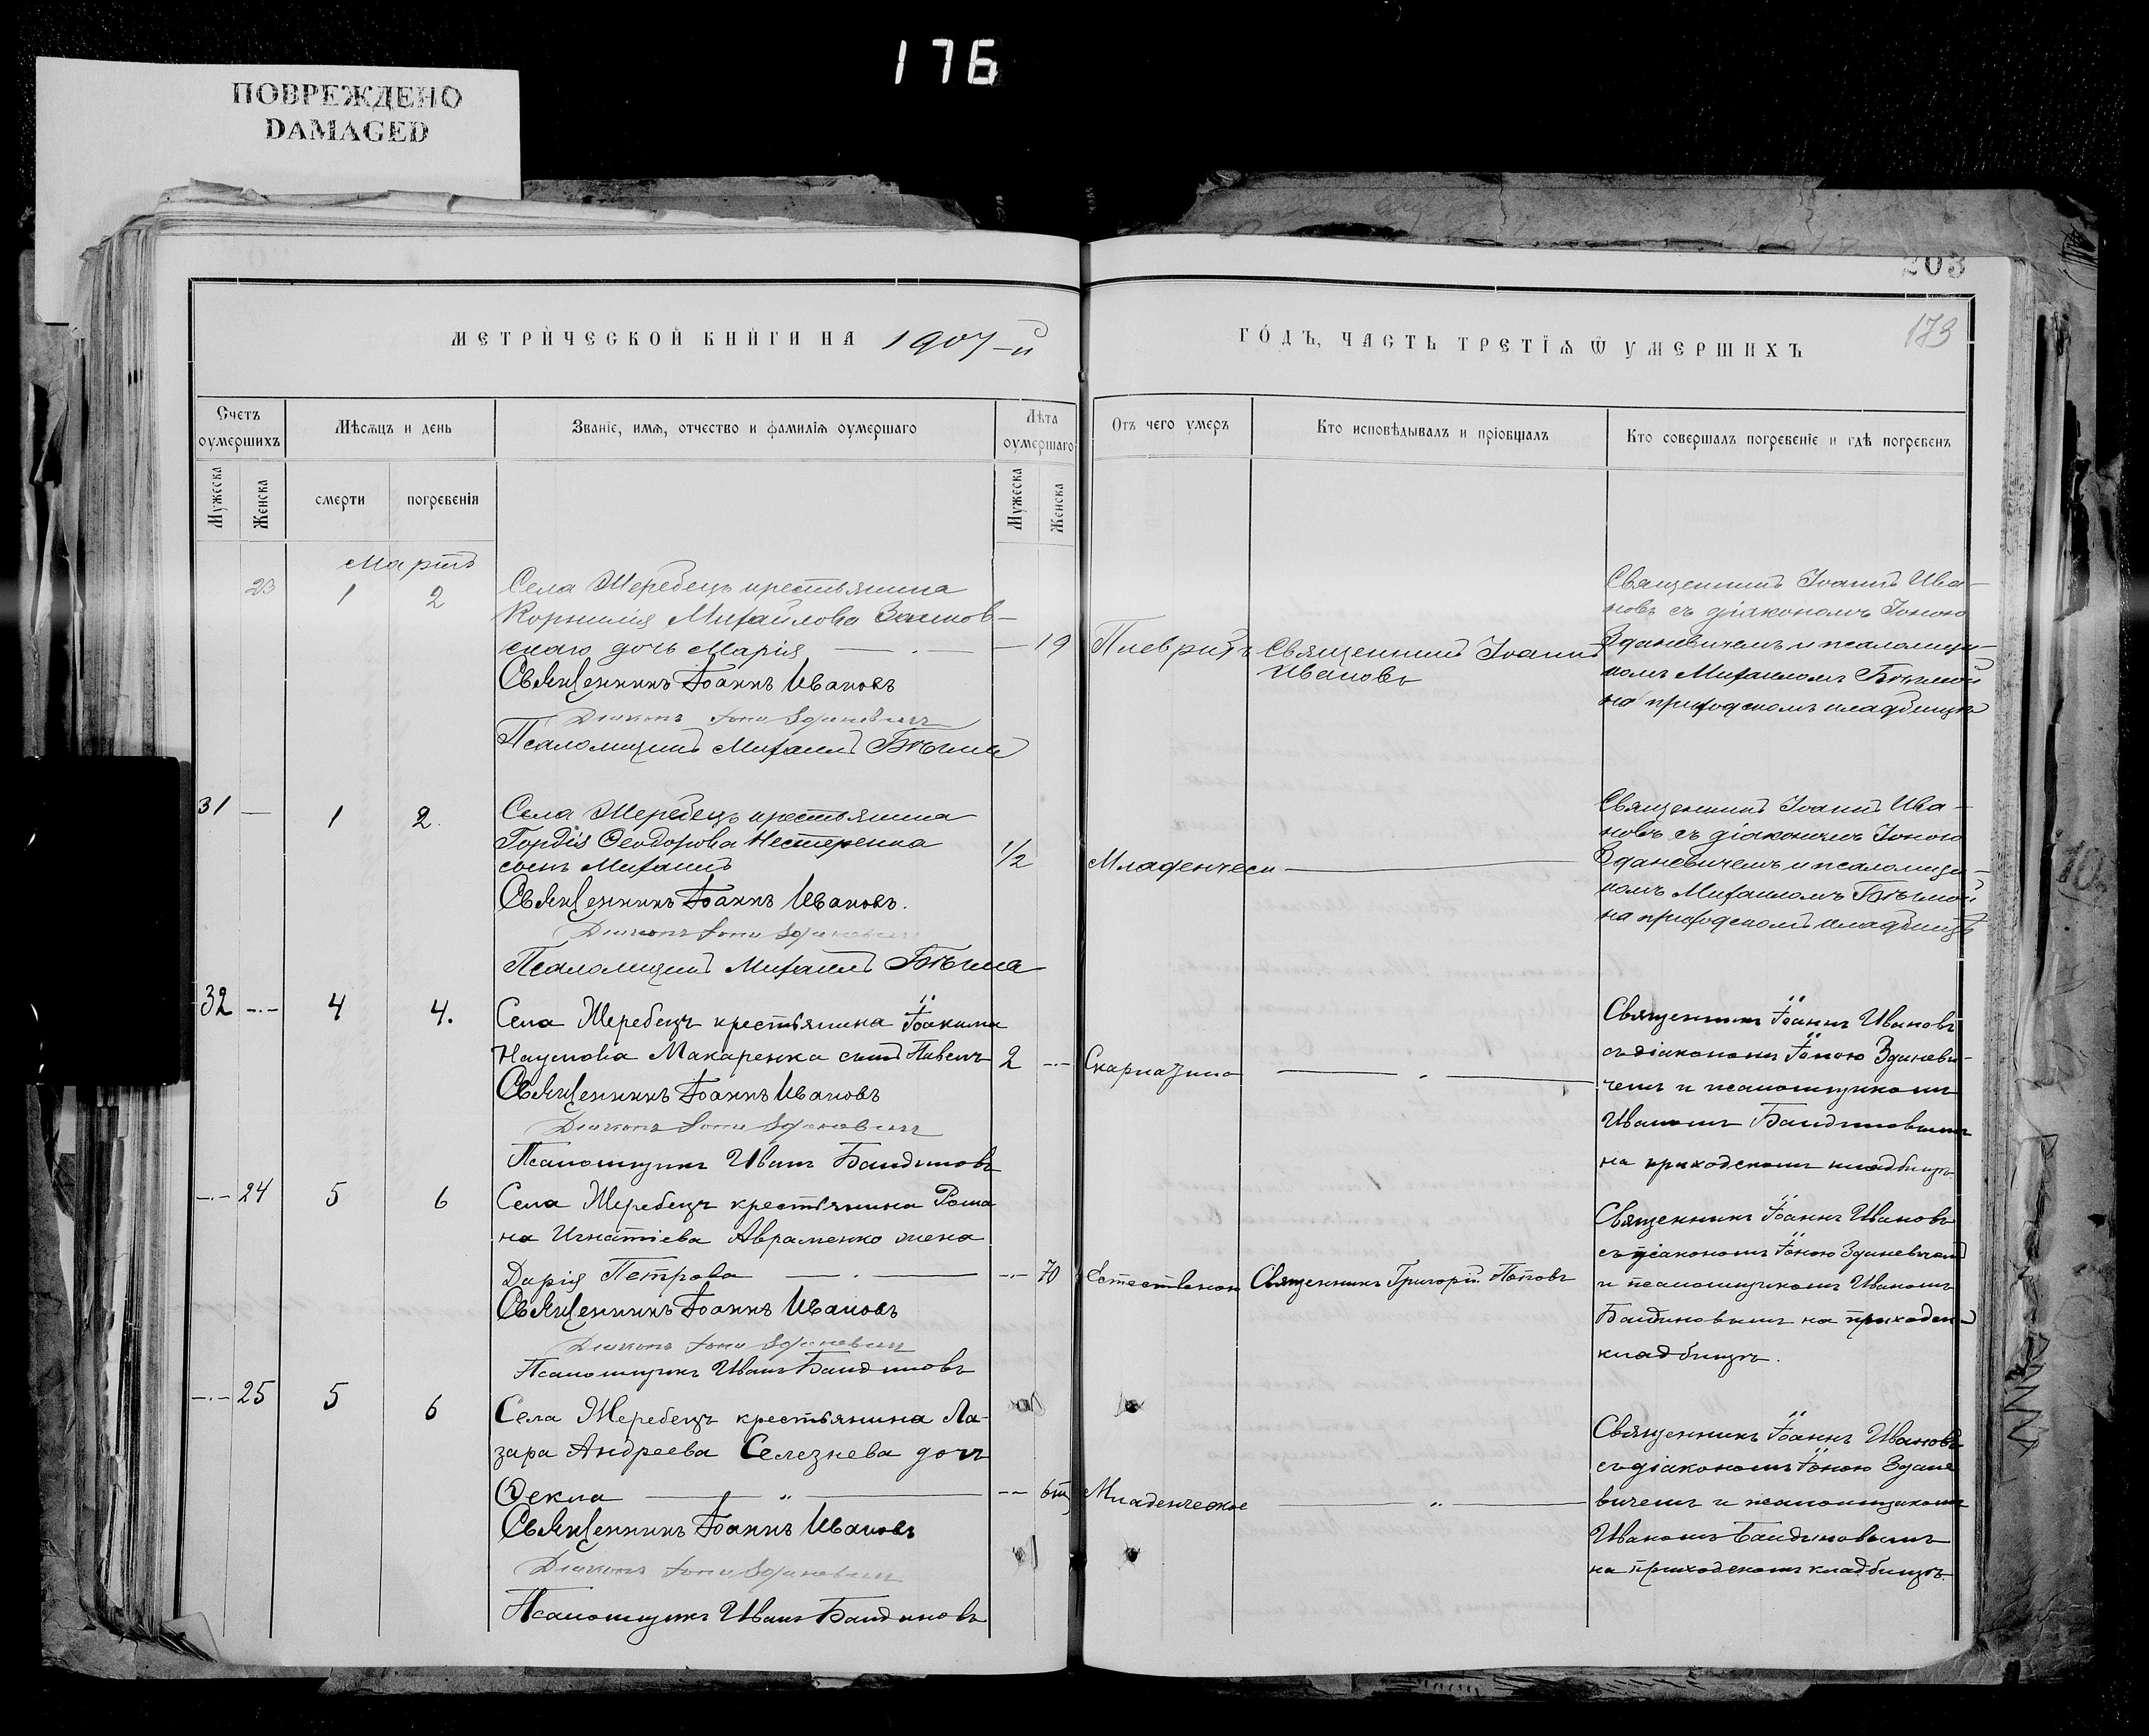 176
ПОВРЕЖДЕНО
DAMAGED
203
173
МЕТРИЧЕСКОЙ КНИГИ НА 1907-й
ГОДЪ, ЧАСТЬ ТРЕТІѦ Ѿ УМЕРШИХЪ
Счетъ оумершихъ
Мѣсѧцъ и день
Званіе, имѧ, отчество и фамиліѧ оумершаго
Лѣта оумершаго
Отъ чего умеръ
Кто исповѣдывалъ и пріобщалъ
Кто совершалъ погребеніе и гдѣ погребенъ
Мужеска
Женска
смерти
погребенія
Мужеска
Женска
Мартъ
23 1 2
Села Жеребецъ крестьянина
Корнилія Михайлова
скаго дочь Марія — 19
Священникъ Іоаннъ Ивановъ
Діаконъ Іона Здановичъ
Псаломщикъ Михаилъ
Плевритъ
Священникъ Іоаннъ
Ивановъ
Священникъ Іоаннъ Ива-
новъ съ діакономъ Іоною
Здановичемъ и псаломщи-
комъ Михаиломъ
на приходскомъ кладбищѣ
31 — 1 2.
Села Жеребецъ крестьянина
Гордія Ѳеодорова Нестеренка
сынъ Михаилъ 1/2
Священникъ Іоаннъ Ивановъ.
Діаконъ Іона Здановичъ
Псаломщикъ Михаилъ
Младенческ
Священникъ Іоаннъ Ива-
новъ съ діакономъ Іоною
Здановичемъ и псаломщи-
комъ Михаиломъ
на приходскомъ кладбищѣ
32 — 4 4.
Села Жеребецъ крестьянина Іоакима
Наумова Макаренка сынъ Павелъ 2 —
Священникъ Іоаннъ Ивановъ
Діаконъ Іона Здановичъ
Псаломщикъ Иванъ Бандиновъ
Скарлатина
Священникъ Іоаннъ Ивановъ
съ діакономъ Іоною Заневи-
чемъ и псаломщикомъ
Иваномъ Бандиновымъ
на приходскомъ кладбищѣ.
— 24 5 6
Села Жеребецъ крестьянина Рома
на Игнатіева Авраменко жена
Дарія Петрова — 70
Священникъ Іоаннъ Ивановъ
Діаконъ Іона Здановичъ
Псаломщикъ Иванъ Бандиновъ
Естественно
Священникъ Григорій Поповъ
Священникъ Іоаннъ Ивановъ
съ діакономъ Іоною Заневичемъ
и псаломщикомъ Иваномъ
Бандиновымъ на приходск
кладбищѣ.
— 25 5 6
Села Жеребецъ крестьянина Ла-
заря Андреева Селезнева дочь
Ѳекла — „ — 6
Священникъ Іоаннъ Ивановъ
Діаконъ Іона Здановичъ
Псаломщикъ Иванъ Бандиновъ
Младенческое
Священникъ Іоаннъ Ивановъ
съ діакономъ Іоною Здане
вичемъ и псаломщикомъ
Иваномъ Бандиновымъ
на приходскомъ кладбищѣ.